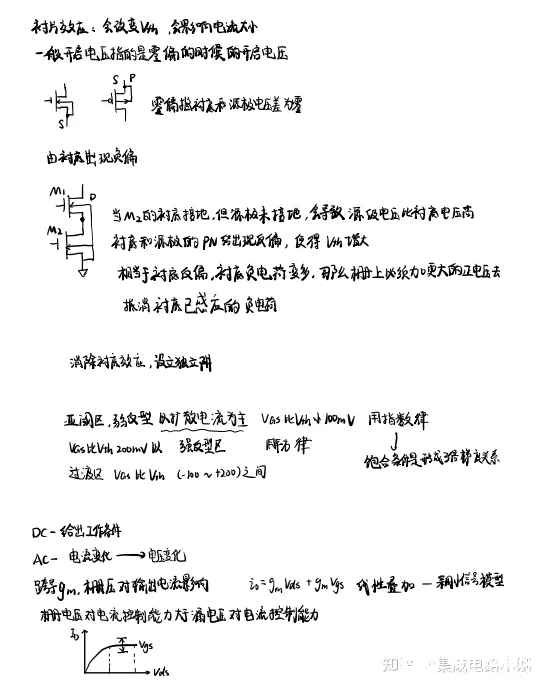 衬底效应：会改变Vth，会影响电流大小
一般开启电压指的是零偏的时候的开启电压
S P
S
零偏指衬底和源极电压差为零
由衬底出现负偏
M1 D
M2
当M2的衬底接地，但源极未接地，会导致 源级电压比衬底电压高
衬底和源极的PN结出现反偏，使得Vth增大
相当于衬底反偏，衬底负电荷变多，那么栅上必须加更大的正电压去
抵消衬底已感应的负电荷
消除衬底效应，设立独立阱
亚阈区，弱反型 以扩散电流为主 VGS比Vth小100mV 用指数律
VGS比Vth 200mV以 强反型区 平方律
饱合条件是形成了倍梯度关系
过渡区 VGS比Vth (-100~+200)之间
DC-给出工作条件
AC- 电流变化 → 电压变化
跨导gm，栅压对输出电流影响 io=gmVds+gmVgs 线性叠加一 小信号模型
栅电压对电流控制能力大于漏电压对电流控制能力
ID Vgs
Vds
知乎 集成电路小